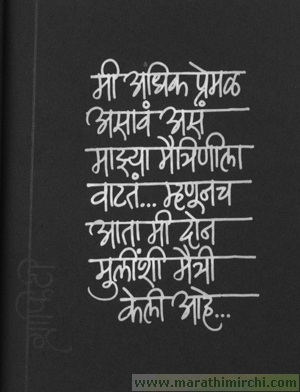 मी अधिक प्रेमळ
असावं असं
माझ्या मैत्रिणीला
वाटतं... म्हणूनच
आता मी दोन
मुलींशी मैत्री
केली आहे...
ग्राफिटी
www.marathimirchi.com